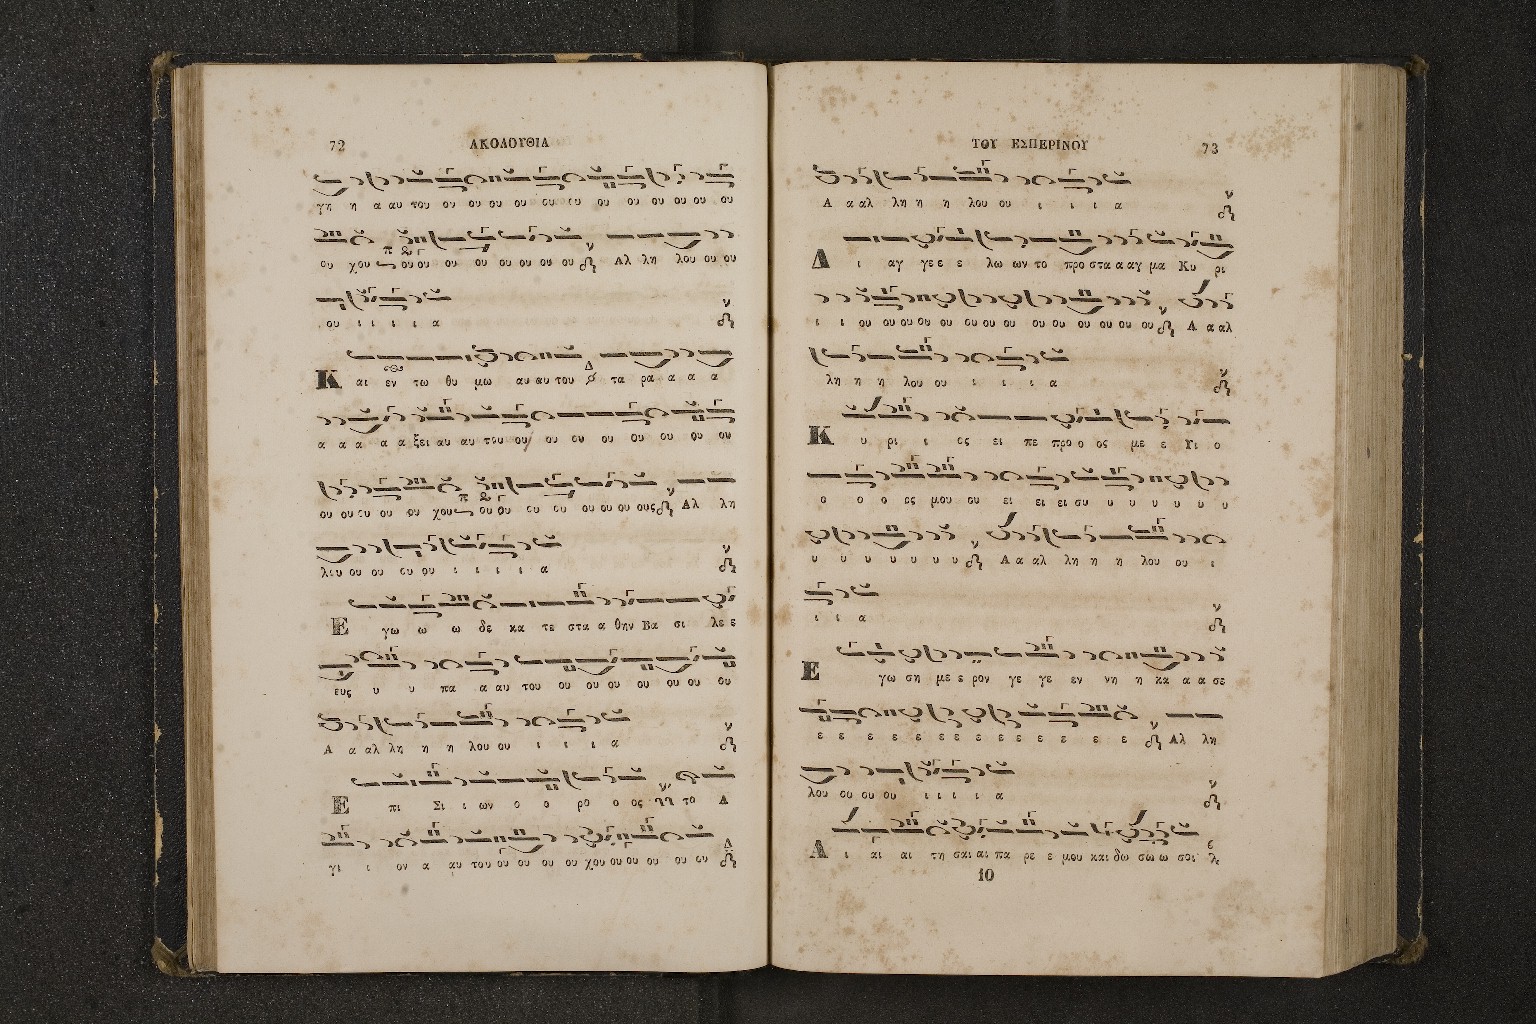 72
ΑΚΟΛΟΥΘΙΑ
γη η α αυ του ου ου ου ου ου ου ου ου ου ου ου ου
ου χου ου ου ου ου ου ου ου ου Αλ λη λου ου ου
ου ι ι ι ι α
Και εν τω θυ μω αυ αυ του τα ρα α α α
α α α α α ξει αυ αυ του ου ου ου ου ου ου ου ου
ου ου ου ου ου χου ου ου ου ου ου ου ου ους Αλ λη
λου ου ου ου ου ι ι ι ι α
Εγω ω ω δε κα τε στα α θην Βα σι λε ε
ευς υ υ πα α αυ του ου ου ου ου ου ου ου
Α α αλ λη η η λου ου ι ι ι α
Επι Σι ι ων ο ο ρο ο ος το Α
γι ι ον α αυ του ου ου ου ου χου ου ου ου ου ου
ΤΟΥ ΕΣΠΕΡΙΝΟΥ
73
Α α αλ λη η η λου ου ι ι ι α
Δι αγ γε ε ε λω ων το προ στα α αγ μα Κυ ρι
ι ι ου ου ου ου ου ου ου ου ου ου ου ου ου ου Α α αλ
λη η η λου ου ι ι ι α
Κυ ρι ι ος ει πε προ ο ος με ε Υι ο
ο ο ο ος μου ου ει ει ει συ υ υ υ υ υ υ
υ υ υ υ υ υ υ Α α αλ λη η η λου ου ι
ι ι α
Εγω ση με ε ρον γε γε εν νη η κα α α σε
ε ε ε ε ε ε ε ε ε ε ε ε ε ε Αλ λη
λου ου ου ου ι ι ι ι α
Αι αι αι τη σαι αι πα ρε ε μου και δω σω ω σοι
10